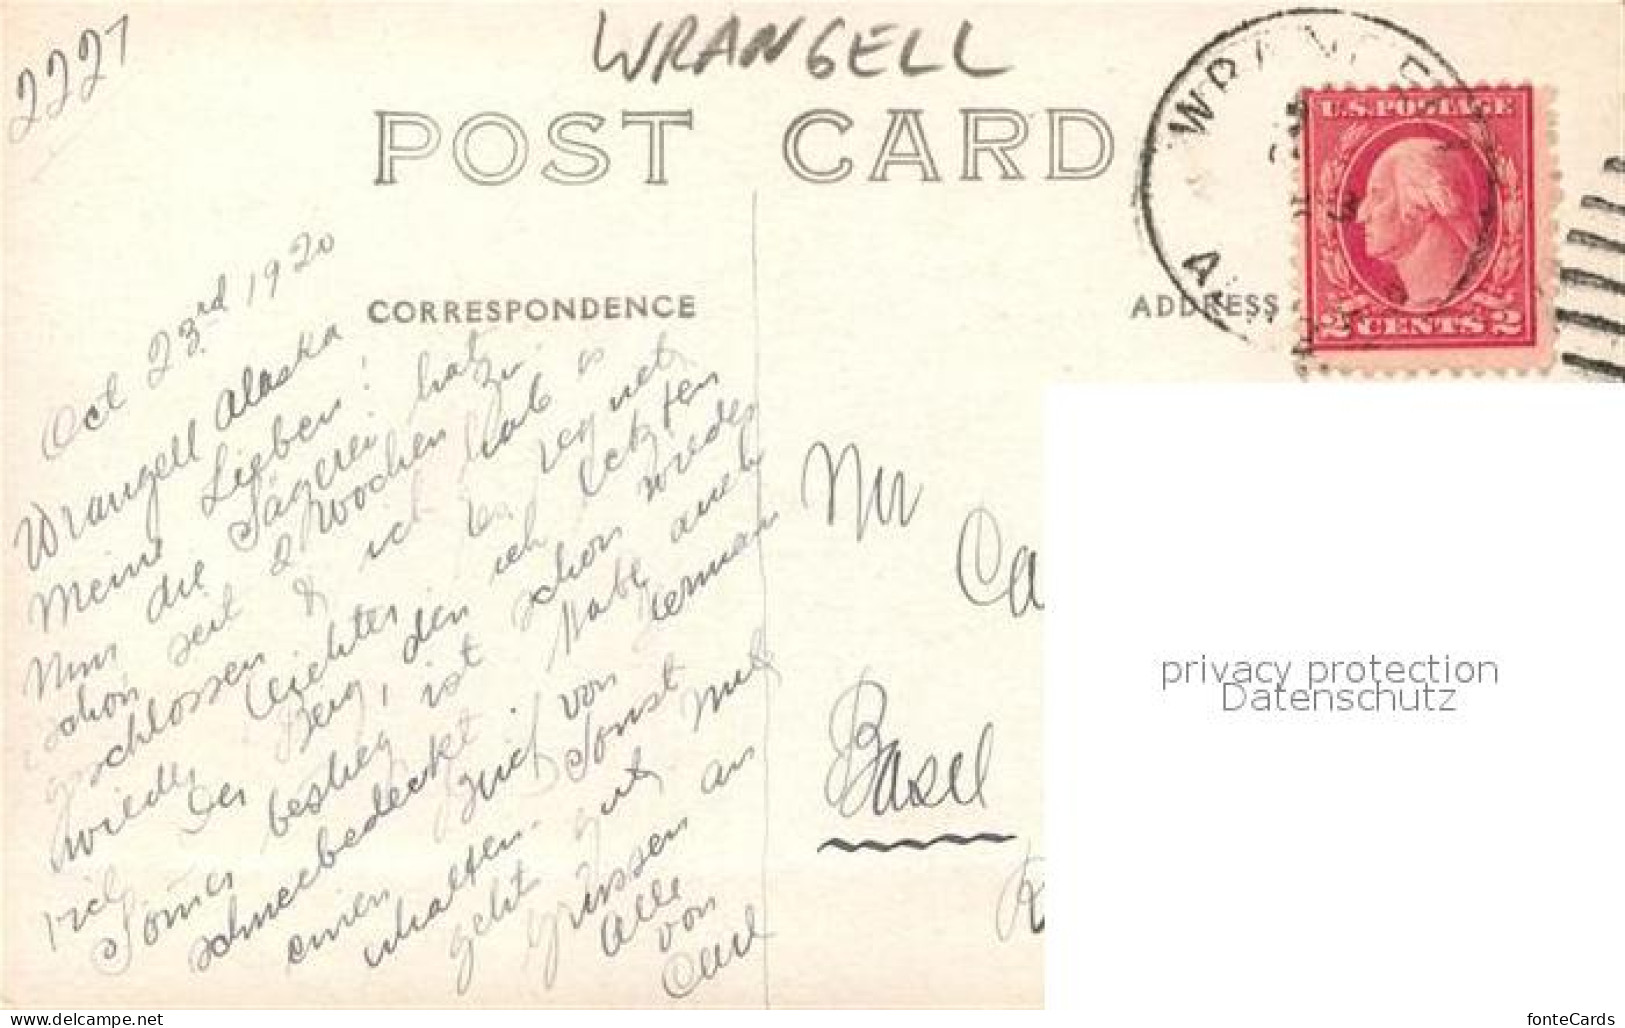 2227
WRANGELL
POST CARD
CORRESPONDENCE
ADDRESS
U.S. POSTAGE
2 CENTS 2
Oct 23rd 1920
Wrangell Alaska
Meine Lieben!
Nun die Sägerei hat
schon seit 2 Wochen
geschlossen & ich hab es
wieder leichter. Es regnet
viel. Der Berg, den ich letzten
Sommer bestieg, ist schon wieder
schneebedeckt. Habe auch
einen Brief von Herman
erhalten. Sonst
geht gut. Mit
Grüssen an
Alle
von
Carl
Mr
Ca
Basel
privacy protection
Datenschutz
www.delcampe.net
fonteCards